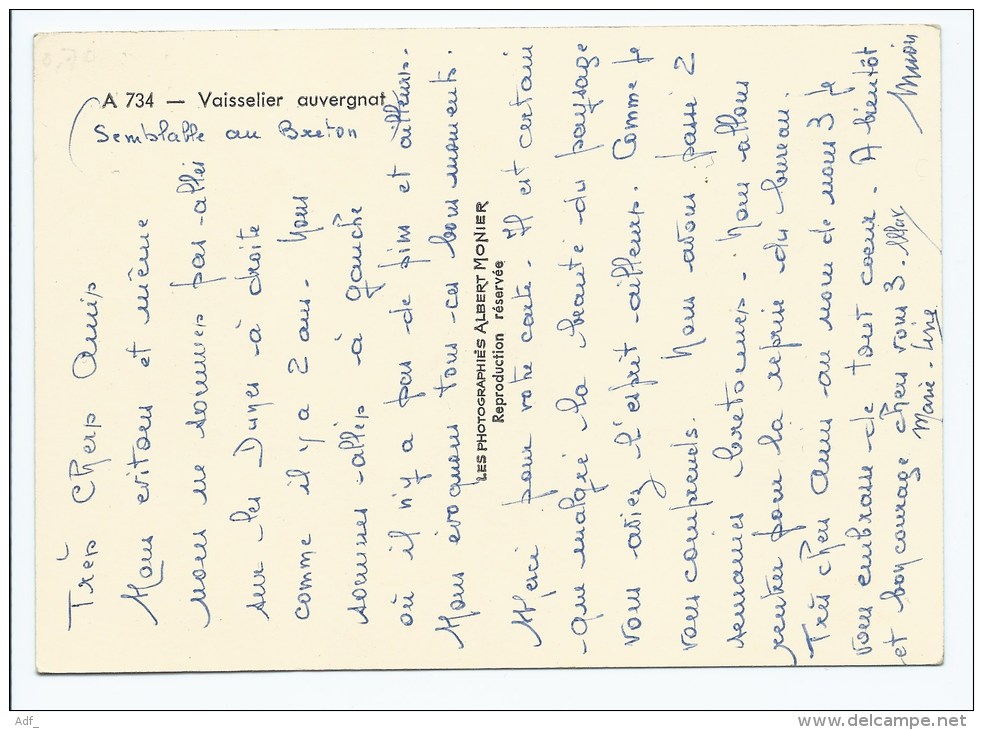 A 734 — Vaisselier auvergnat
Semblable au Breton
Très Chers Amis
Nous evitons et même
nous ne sommes pas-allés
sur-les Dunes-à droite
comme il y a 2 ans. Nous
sommes-allés à gauche
où il n'y a pas-de pins et ailleurs-
Nous évoquons tous-ces bons moments.
LES PHOTOGRAPHIES ALBERT MONIER
Reproduction réservée
Merci pour votre carte. Il est certain
-que malgré la beauté-du paysage
vous aviez l'esprit-ailleurs. Comme je
vous comprends. Nous avons passé 2
semaines bretonnes- Nous allons
rentrer pour la reprise-du bureau.
Très chers Amis-au nom de nous 3 je
vous embrasse-de tout coeur. A bientôt
et bon courage chers vous 3.
Marie-Line
0,70
Adf_
www.delcampe.net